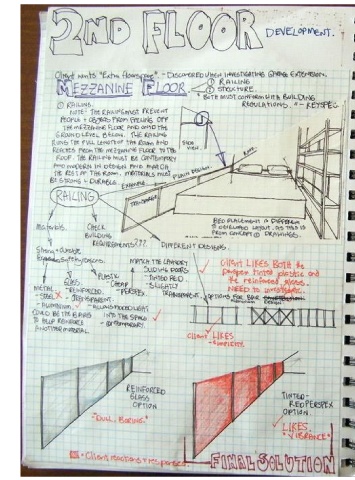 2ND FLOOR DEVELOPMENT.
Client wants "Extra floorspace" - Discovered when investigating garage extension.
MEZZANINE FLOOR
① RAILING
② STRUCTURE
* BOTH MUST CONFORM WITH BUILDING
REGULATIONS." - KEYSPEC
① RAILING.
NOTE: THE RAILING MUST PREVENT
PEOPLE + OBJECTS FROM FALLING OFF
THE MEZZANINE FLOOR AND ONTO THE
GROUND LEVEL BELOW. THE RAILING
RUNS THE FULL LENGTH OF THE ROOM AND
REACHES FROM THE MEZZANINE FLOOR TO THE
ROOF. THE RAILING MUST BE CONTEMPORARY
AND MODERN IN DESIGN AND MATCH
THE REST OF THE ROOM. MATERIALS MUST
BE STRONG + DURABLE
SIDE
VIEW.
EXAMPLE
PLAIN DESIGN
RAILING
BED PLACEMENT IS DIFFERENT
AS THIS IS
FROM CONCEPT
DRAWINGS.
Materials.
CHECK
BUILDING
REQUIREMENTS???
DIFFERENT DESIGNS.
Strong + durable
GLASS
REINFORCED
TRANSPARENT
PLASTIC
CHEAP
PERSPEX
MATCH THE LAUNDRY
SLIDING DOORS
- TINTED RED
- SLIGHTLY
TRANSPARENT
METAL
STEEL
ALUMINIUM
COULD BE THE BARS
TO HELP REINFORCE
ANOTHER MATERIAL.
- ALLOWS MORE LIGHT
INTO THE SPACE
- CONTEMPORARY
Client LIKES BOTH the
perspex tinted plastic and
the reinforced glass.
NEED to investigate.
OPTIONS FOR BAR
Client LIKES
- simplicity.
REINFORCED
GLASS
OPTION
"Dull. Boring."
TINTED
RED PERSPEX
OPTION
LIKES.
"VIBRANCE"
= Client reactions + responses.
FINAL SOLUTION